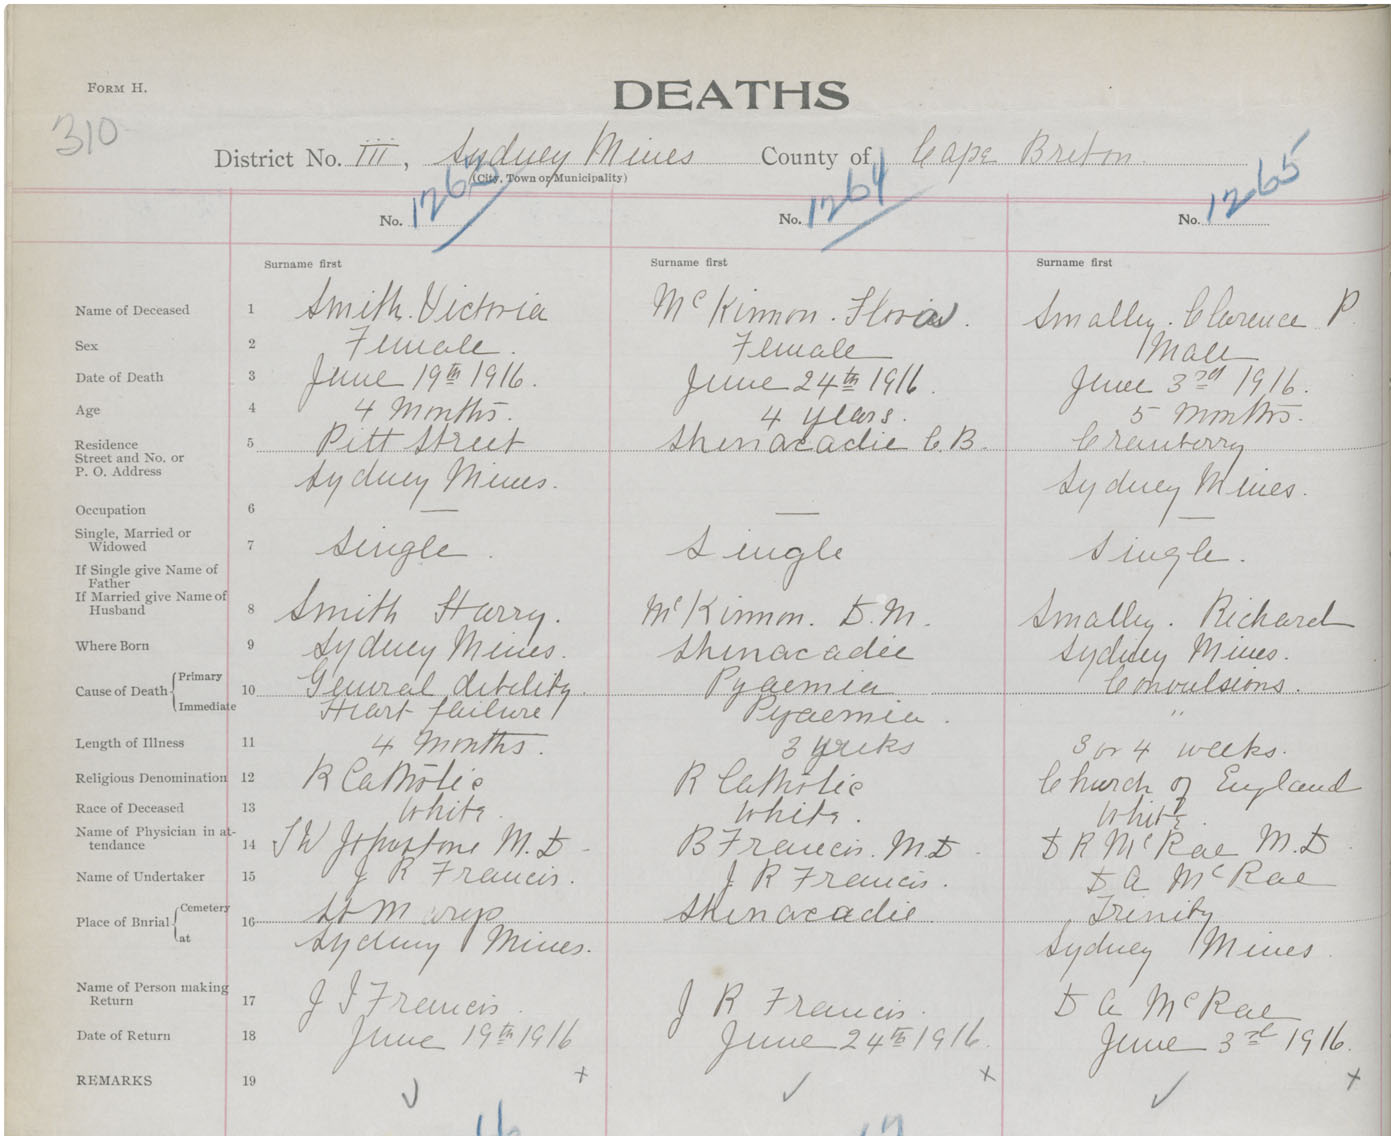 FORM H.
DEATHS
310
District No. III, Sydney Mines County of Cape Breton.
(City, Town or Municipality)
No. 1263 No. 1264 No. 1265
Surname first Surname first Surname first
Name of Deceased 1 Smith. Victoria McKinnon. Flora. Smalley. Clarence P.
Sex 2 Female. Female Male
Date of Death 3 June 19th 1916. June 24th 1916. June 3rd 1916.
Age 4 4 Months. 4 years. 5 Months.
Residence 5 Pitt Street Shenacadie C.B. Cranberry
Street and No. or
P. O. Address Sydney Mines. Sydney Mines.
Occupation 6 — — —
Single, Married or
Widowed 7 Single. Single Single.
If Single give Name of
Father
If Married give Name of
Husband 8 Smith Harry. McKinnon. D.M. Smalley. Richard
Where Born 9 Sydney Mines. Shenacadie Sydney Mines.
Cause of Death Primary 10 General debility. Pyaemia Convulsions.
Immediate Heart failure Pyaemia. "
Length of Illness 11 4 Months. 3 3 or 4 weeks.
Religious Denomination 12 R Catholic R Catholic Church of England
Race of Deceased 13 White White. White.
Name of Physician in at-
tendance 14 Johnstone M.D. B Francis. M.D. D R McRae M.D.
Name of Undertaker 15 J R Francis. J R Francis. D A McRae
Place of Bnrial Cemetery 16 St Marys Shenacadie Trinity
at Sydney Mines. Sydney Mines
Name of Person making
Return 17 J J Francis. J R Francis. D A McRae
Date of Return 18 June 19th 1916 June 24th 1916. June 3rd 1916.
REMARKS 19 ✓ x ✓ x ✓ x